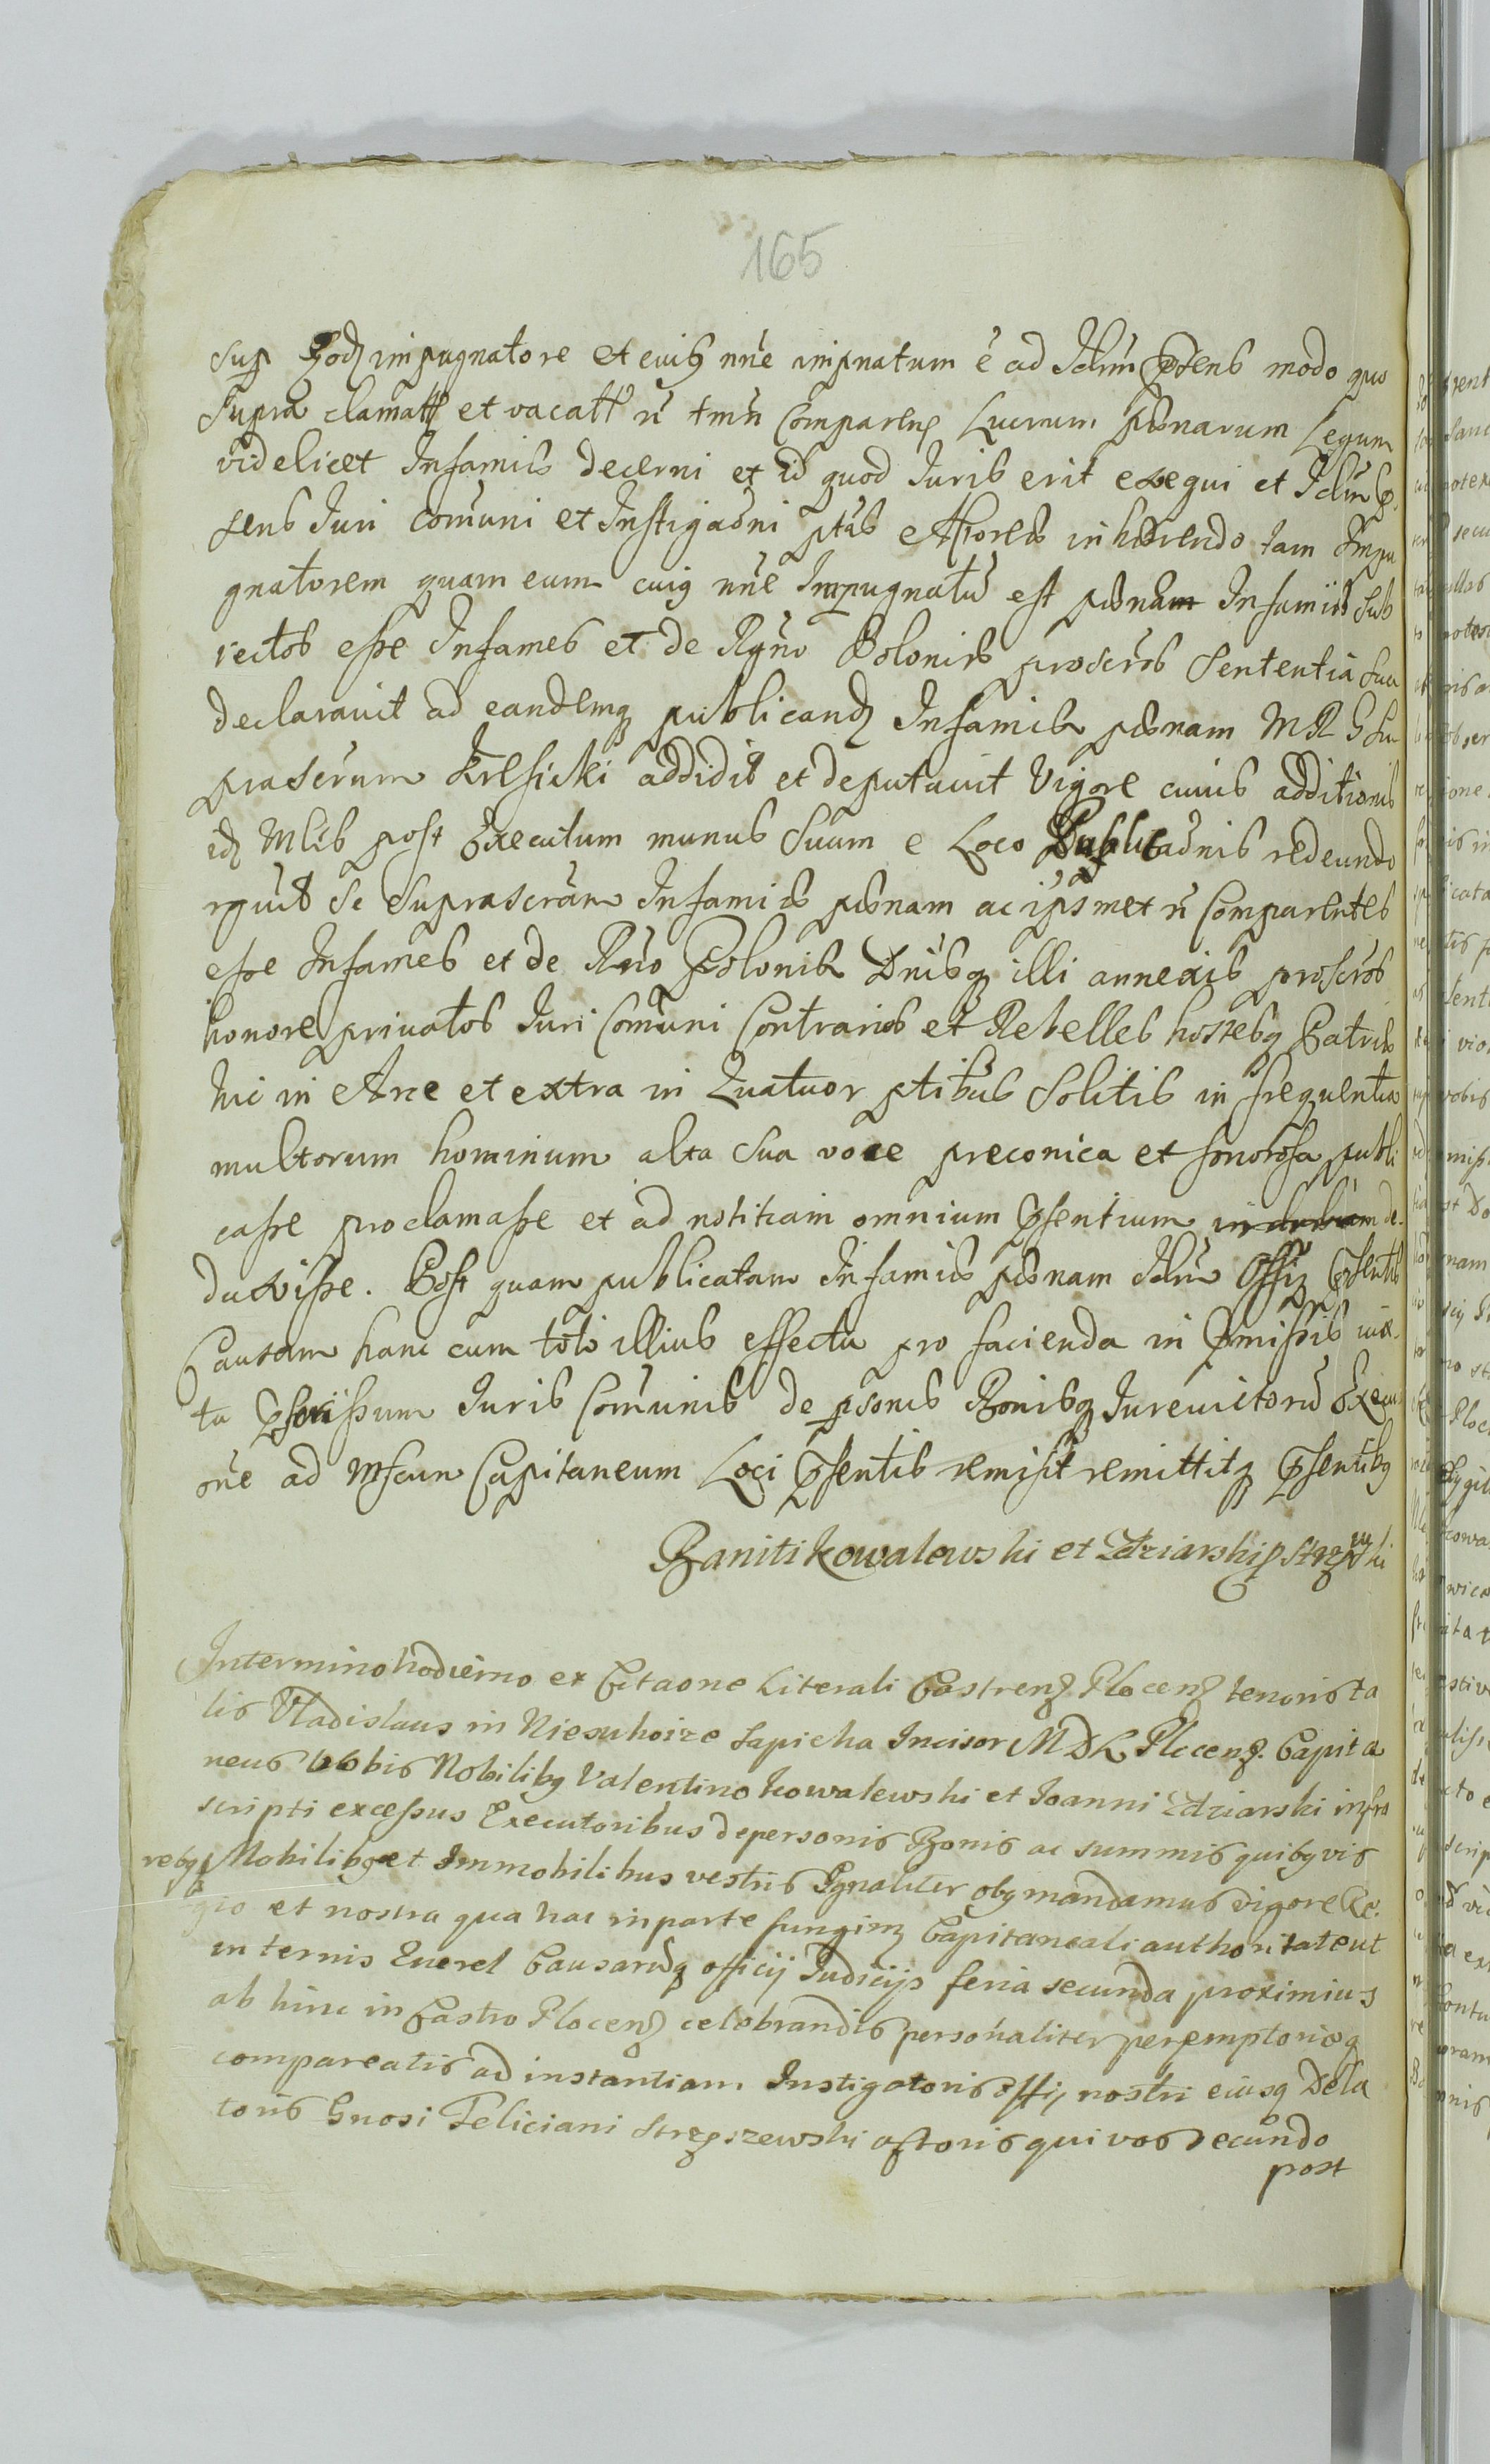 165
sup eodz impugnatore et cuibz nne impnatum é ad Idim Psens modo quo
supra clamatt et vacatt ñ tmñ Comparenz Lucrum poenarum Legum
videlicet Infamiae decerni et id quod Iuris erit exequi et Idim P
sens Iuri comuni et Instigaoni ptis Actoreae inhaerendo tam Impu
gnatorem quam eum cuiq nne Impugnatũ est poenam Infamiae sub
iectos esse Infames et de Rgno Poloniae proscros Sententia sua
declaravit ad eandemq publicandz Infamiae poenam M R G su
prascrum Krsicki addidit et deputauit Vigore cuius additionis
idz Mlis post Executum munus Suum e Loco Publicaonis redeundo
rguit se Suprascram Infamiae poenam ac ipsmet ñ Comparentes
esse Infames et de Rno Poloniae Dnibq illi annexis proscros
honore privatos Iuri Comuni Contrarios et Rebelles hostesq Patriae
hic in Arce et extra in Quatuor ptibus Solitis in frequentia
multorum hominum alta sua voce preconica et sonorosa publi
casse proclamasse et ad notitiam omnium Psentium de
duxisse. Post quam publicatam Infamiae poenam Idim Offiz Psentis
Causam hanc cum toto illius effectu pro facienda in Pmissis iux
ta Pscrissum Iuris Comunis de psonis Bonisq Iurevictorũ Execu
one ad Mfcum Capitaneum Loci Psentis remisit remittitq Psentibz
Baniti Kowalewski et Zdziarski p Strzszewski
In termino hodierno ex Citaone Literali Castrenz Plocenz tenoris ta
lis Vladislaus in Niesuhoize Sapieha Incisor M D L Plocenz Capita
neus Vobis Nobilibz Valentino Kowalewski et Joanni Zdziarski infra
scripti excessus Executoribus de personis Bonis ac summis quibzvis
rebzq Mobilibz et Immobilibus vestris Pgnaliter obz mandamus vigore Re
gio et nostra qua hac in parte fungimz Capitaneali authoritate ut
in ternis Querel Causarũq officij Judicijs feria secunda proximius
ab hinc in Castro Plocenz celebrandis personaliter peremptorieq
compareatis ad instantiam Instigatoris offij nostri eiusq Dela
toris Gnosi Feliciani Strzszewski actoris qui vos secundo
post